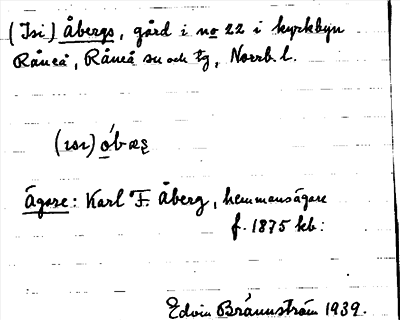 (Isi) Åbergs, gård i no 22 i kyrkbyn
Råneå, Råneå sn och tg, Norrb. l.
(ısı) óbæȩ
Ägare: Karl F. Åberg, hemmansägare
f. 1875 kb:
Edvin Brännström 1939.